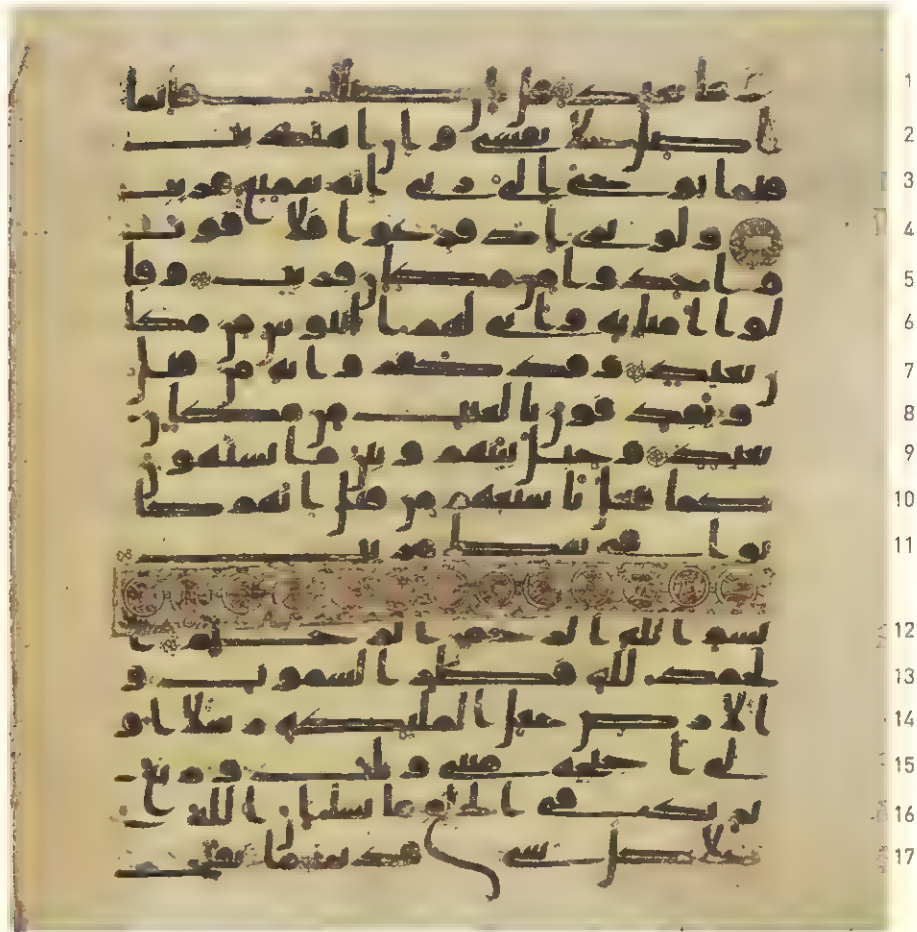 وما يعيد قل ان ضللت فانما 1
اضل على نفسي وان اهتديت 2
فبما يوحي الي ربي انه سميع قريب 3
ولو ترى اذ فزعوا فلا فوت 4
واخذوا من مكان قريب وقا 5
لوا امنا به وانى لهم التناوش من مكا 6
ن بعيد وقد كفروا به من قبل 7
ويقذفون بالغيب من مكان 8
بعيد وحيل بينهم وبين ما يشتهون 9
كما فعل باشيعهم من قبل انهم كا 10
نوا في شك مريب 11
بسم الله الرحمن الرحيم ا 12
لحمد لله فطر السموت و 13
الارض جعل الملئكة رسلا او 14
لي اجنحة مثنى وثلث وربع 15
يزيد في الخلق ما يشا ان الله على 16
كل شي قدير ما يفتح 17